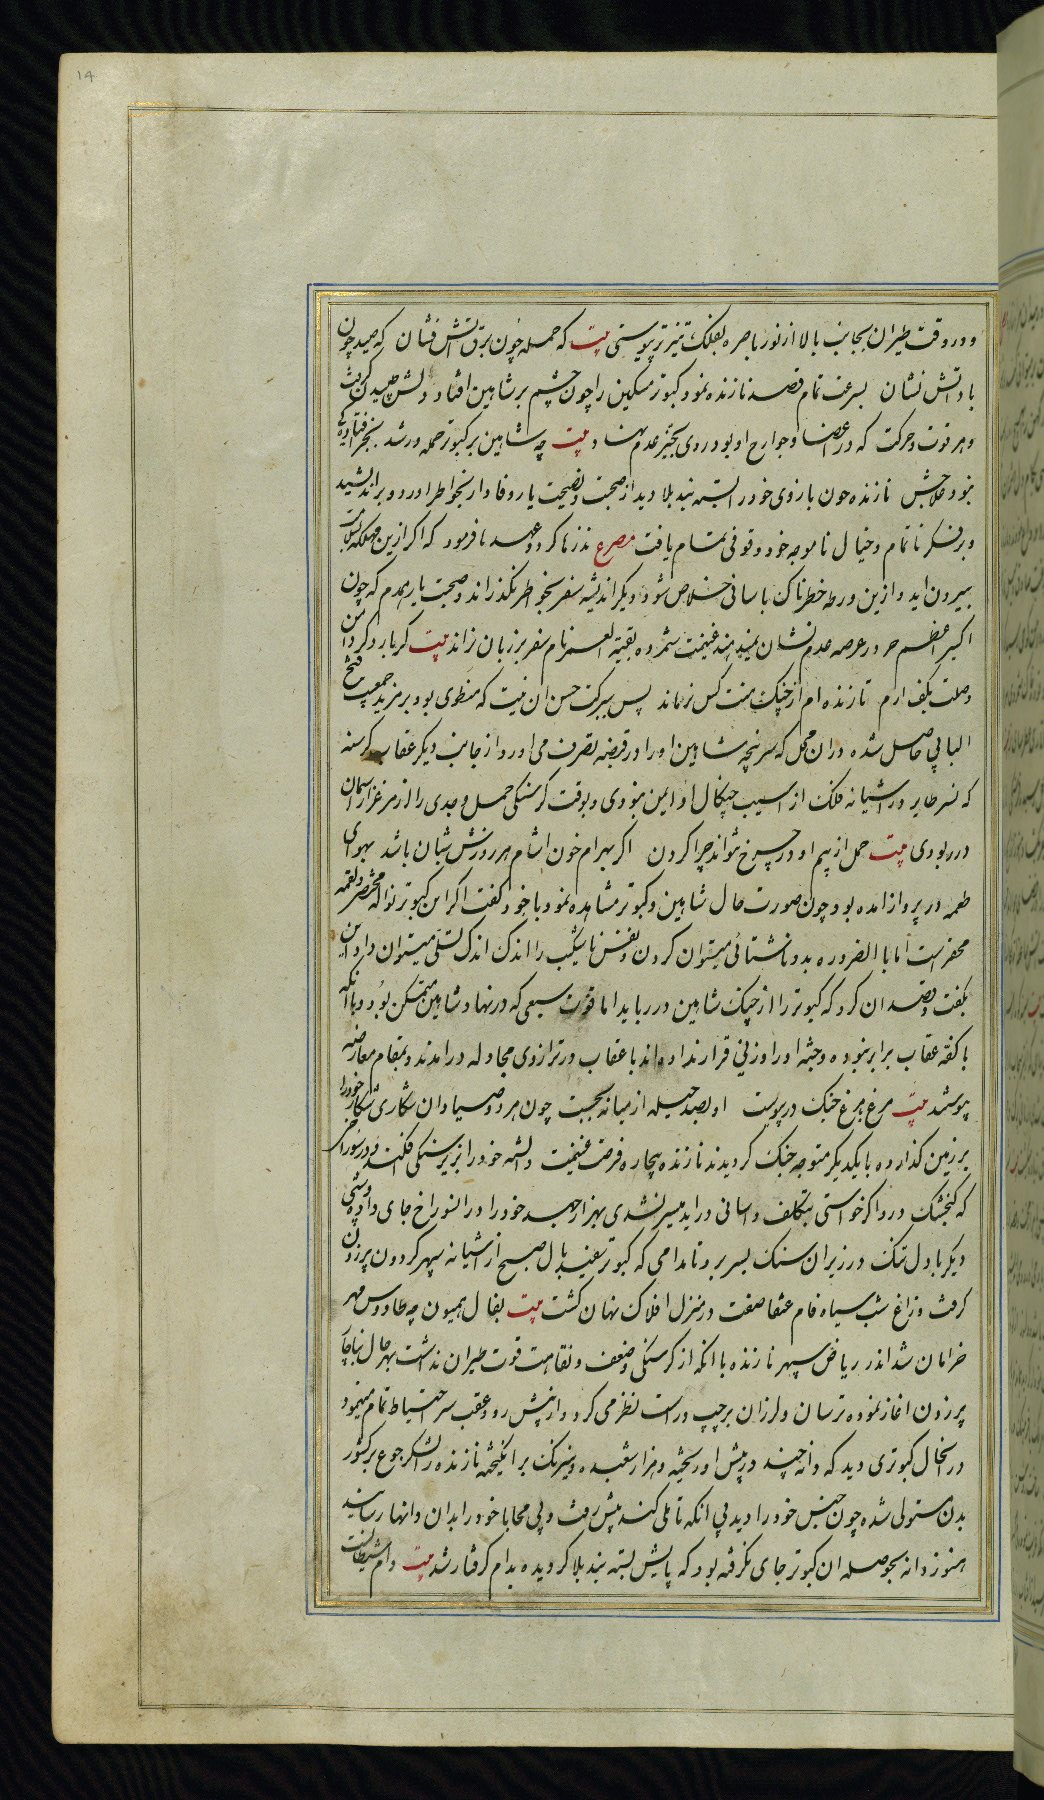 14
و در وقت طیران بجانب بالا از نور باصره بفلک تیزتر پیوستی بیت که حمله چون برق آتش فشان که صید چون
باد آتش نشان بسرعت تمام قصد نازنده نمود کبوتر مسکین را چون چشم بر شاهین افتاد دلش طپیدن گرفت
و هر قوت و حرکت که در اعضا و جوارح او بود روی بحیز عدم نهاد بیت چه شاهین بر کبوتر حمله ور شد
نبود علاجش نازنده چون بازوی خود را بسته بند بلا دید از صحبت و نصیحت یار وفادار بخواطر آورد و براندیشید
و بر فکر ناتمام و خیال ناموجه خود وقوفی تمام یافت مصرع نذرها کرد و عهد نا فرمود که اگر ازین مهلکه بسلامت
بیرون اید و ازین ورطه خطرناک باسانی خلاص شود دیگر اندیشه سفر بخواطر نگذراند و صحبت یار همدم که چون
اکسیر اعظم جز در عرصه عدم نشان نمیدهند غنیمت شمرده بقیة العمر نام سفر بر زبان نراند بیت گر بار دگر دامن
وصلت بکف ارم تا زنده ام از چنگ منت کس نرهاند پس ببرکت حسن ان نیت که منطوی بود بر مزید جمعیت فتح
البابی حاصل شده در ان محل که سرپنجه شاهین او را در قبضه تصرف می اورد از جانب دیگر عقاب گرسنه
که نسر طایر در اشیانه فلک از اسیب چنگال او ایمن نبودی و بوقت گرسنگی حمل و جدی را از مرغزار اسمان
در ربودی بیت حمل از بیم او در چرخ نتواند چرا کردن اگر بهرام خون اشام هر روزش شبان باشد بهوای
طعمه در پرواز امده بود چون صورت حال شاهین و کبوتر مشاهده نمود با خود گفت اگر این کبوتر نواله مختصر و لقمه
محقر است اما با الضروره بدو ناشتائی میتوان کردن و نفس ناشکیب را اندک اندک تسلی میتوان داد این
بگفت و قصد ان کرد که کبوتر را از چنگ شاهین در رباید اما قوت سبعی که در نهاد شاهین متمکن بود و با انکه
با کفه عقاب برابر نبوده و جثه او را وزنی قرار نداده اند با عقاب در ترازوی مجادله در امدند و بمقام معارضه
پیوستند بیت مرغ بمرغ جنگ در پیوست او بصد حیله از میانه بجست چون هر دو صیاد ان شکاری شکار خود را
بر زمین گذارده با یکدیگر متوجه جنگ گردیدند نازنده بیچاره فرصت غنیمت دانسته خود را بزیر سنگی فکند و در سوراخی
که گنجشک در و اگر خواستی بتکلف و اسانی در اید میسر نشدی بهزار جهد خود را در ان سوراخ جای داد و شبی
دیگر با دل تنگ در زیر ان سنگ بسر برد تا دامی که کبوتر سفید بال صبح از اشیانه سپهر گردون پر زدن
گرفت و زاغ شب سیاه فام عنقا صفت در منزل افلاک نهان گشت بیت بفال همیون چه طاووس مهر
خرامان شد اندر ریاض سپهر نازنده با انکه از گرسنگی و ضعف و نقاهت قوت طیران نداشت بهر حال ناچار
پر زدن اغاز نموده ترسان و لرزان بر چپ و راست نظر می کرد و از پیش رو و عقب سر احتیاط تمام مینمود
در انحال کبوتری دید که دانه چند در پیش او ریخته و هزار شعبده و نیرنگ بر انگیخته نازنده را لشکر جوع بر کشور
بدن مستولی شده چون جنس خود را دید بی انکه تاملی کند پیش رفت و بی محابا خود را بدان دانها رسانید
هنوز دانه بحوصله ان کبوتر جای نگرفته بود که پایش بسته بند بلا گردیده بدام گرفتار شد بیت دام شیطانست